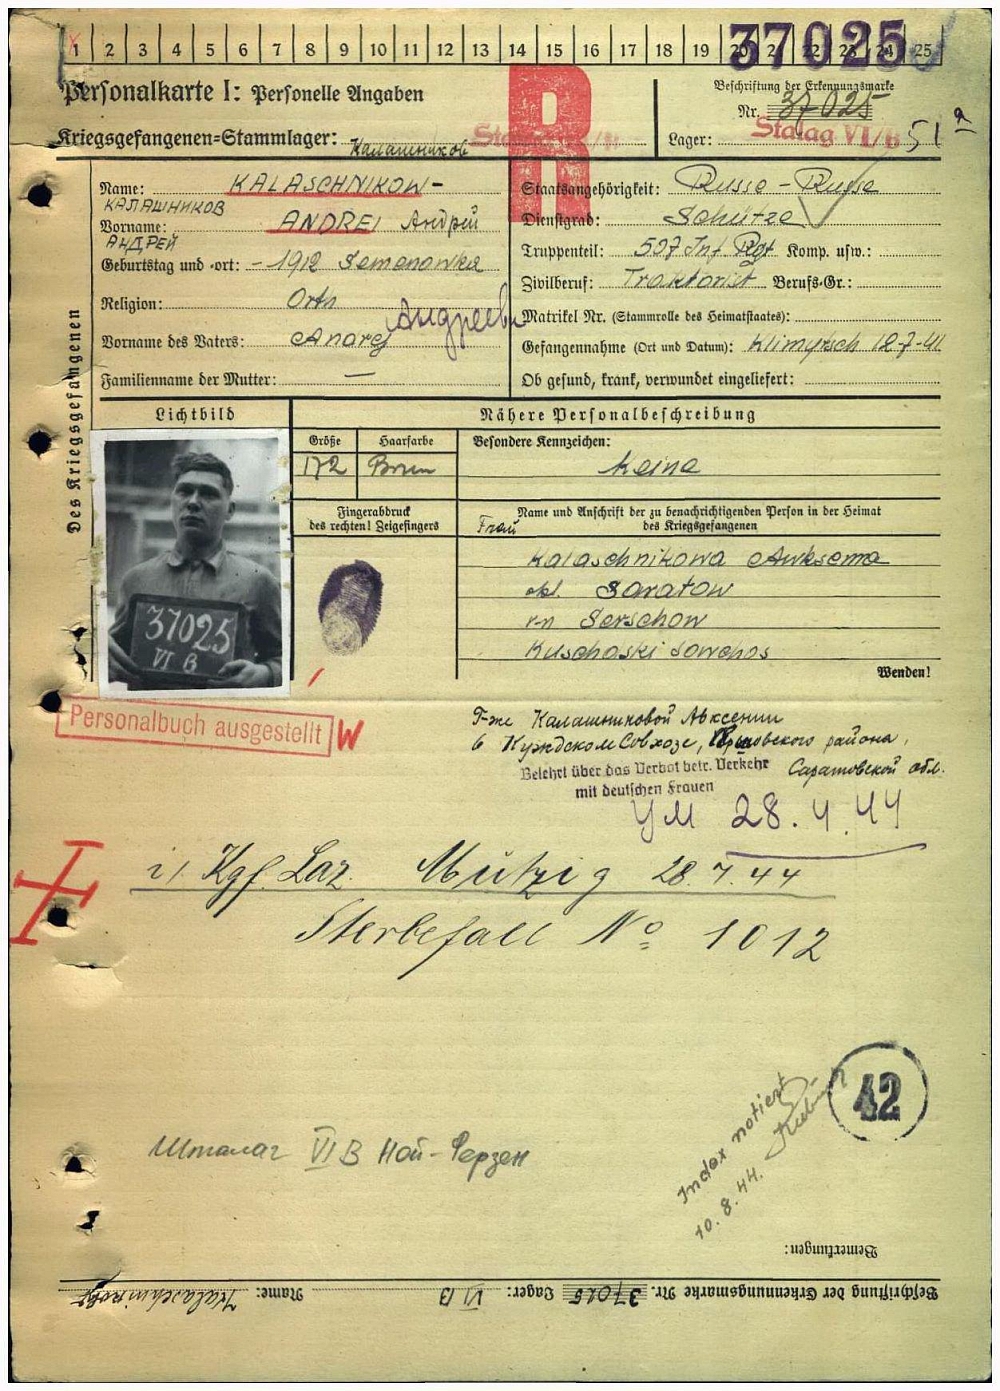 1 2 3 4 5 6 7 8 9 10 11 12 13 14 15 16 17 18 19 20 21 22 23 24 25
37025
Personalkarte I: Personelle Angaben
Beschriftung der Erkennungsmarke
Nr. 37025
Kriegsgefangenen-Stammlager:
Lager: Stalag VI/B 51a
R
Калашников
Des Kriegsgefangenen
Name: KALASCHNIKOW-
КАЛАШНИКОВ
Vorname: ANDREI Андрей
АНДРЕЙ
Geburtstag und -ort: -1912 Semenowka
Religion: Orth
Vorname des Vaters: Andrej Андреевич
Familienname der Mutter: —
Staatsangehörigkeit: Russe - Russe
Dienstgrad: Schütze
Truppenteil: 507 Inf Rgt Komp. usw.:
Zivilberuf: Traktorist Berufs-Gr.:
Matrikel Nr. (Stammrolle des Heimatstaates):
Gefangennahme (Ort und Datum): 12-7-41
Ob gesund, krank, verwundet eingeliefert:
Lichtbild
Nähere Personalbeschreibung
Größe
Haarfarbe
Besondere Kennzeichen:
172
Keine
Fingerabdruck
des rechten! Zeigefingers
Name und Anschrift der zu benachrichtigenden Person in der Heimat
des Kriegsgefangenen
Frau
Kalaschnikowa Awksema
obl. Saratow
r-n Serschow
Kuschoski Sowchos
Wenden!
37025
VI B
Personalbuch ausgestellt W
Г-же Калашниковой Авксении
в Совхозе, района,
Саратовской обл.
Belehrt über das Verbot betr. Verkehr
mit deutschen Frauen
УМ 28.4.44
Kgf. Laz. Mützig 28.4.44
Sterbefall No 1012
42
Index notiert
10.8.44.
Шталаг VI B Ной-Ферзен
Bemerkungen:
Beschriftung der Erkennungsmarke Nr. 37025 Lager: VI B Name: Kalaschnikow